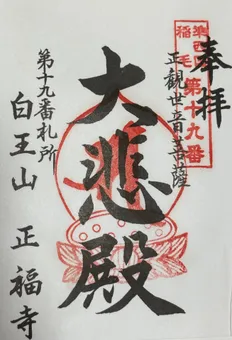 奉拝
第十九番
正観世音菩薩
大悲殿
第十九番札所
白王山 正福寺